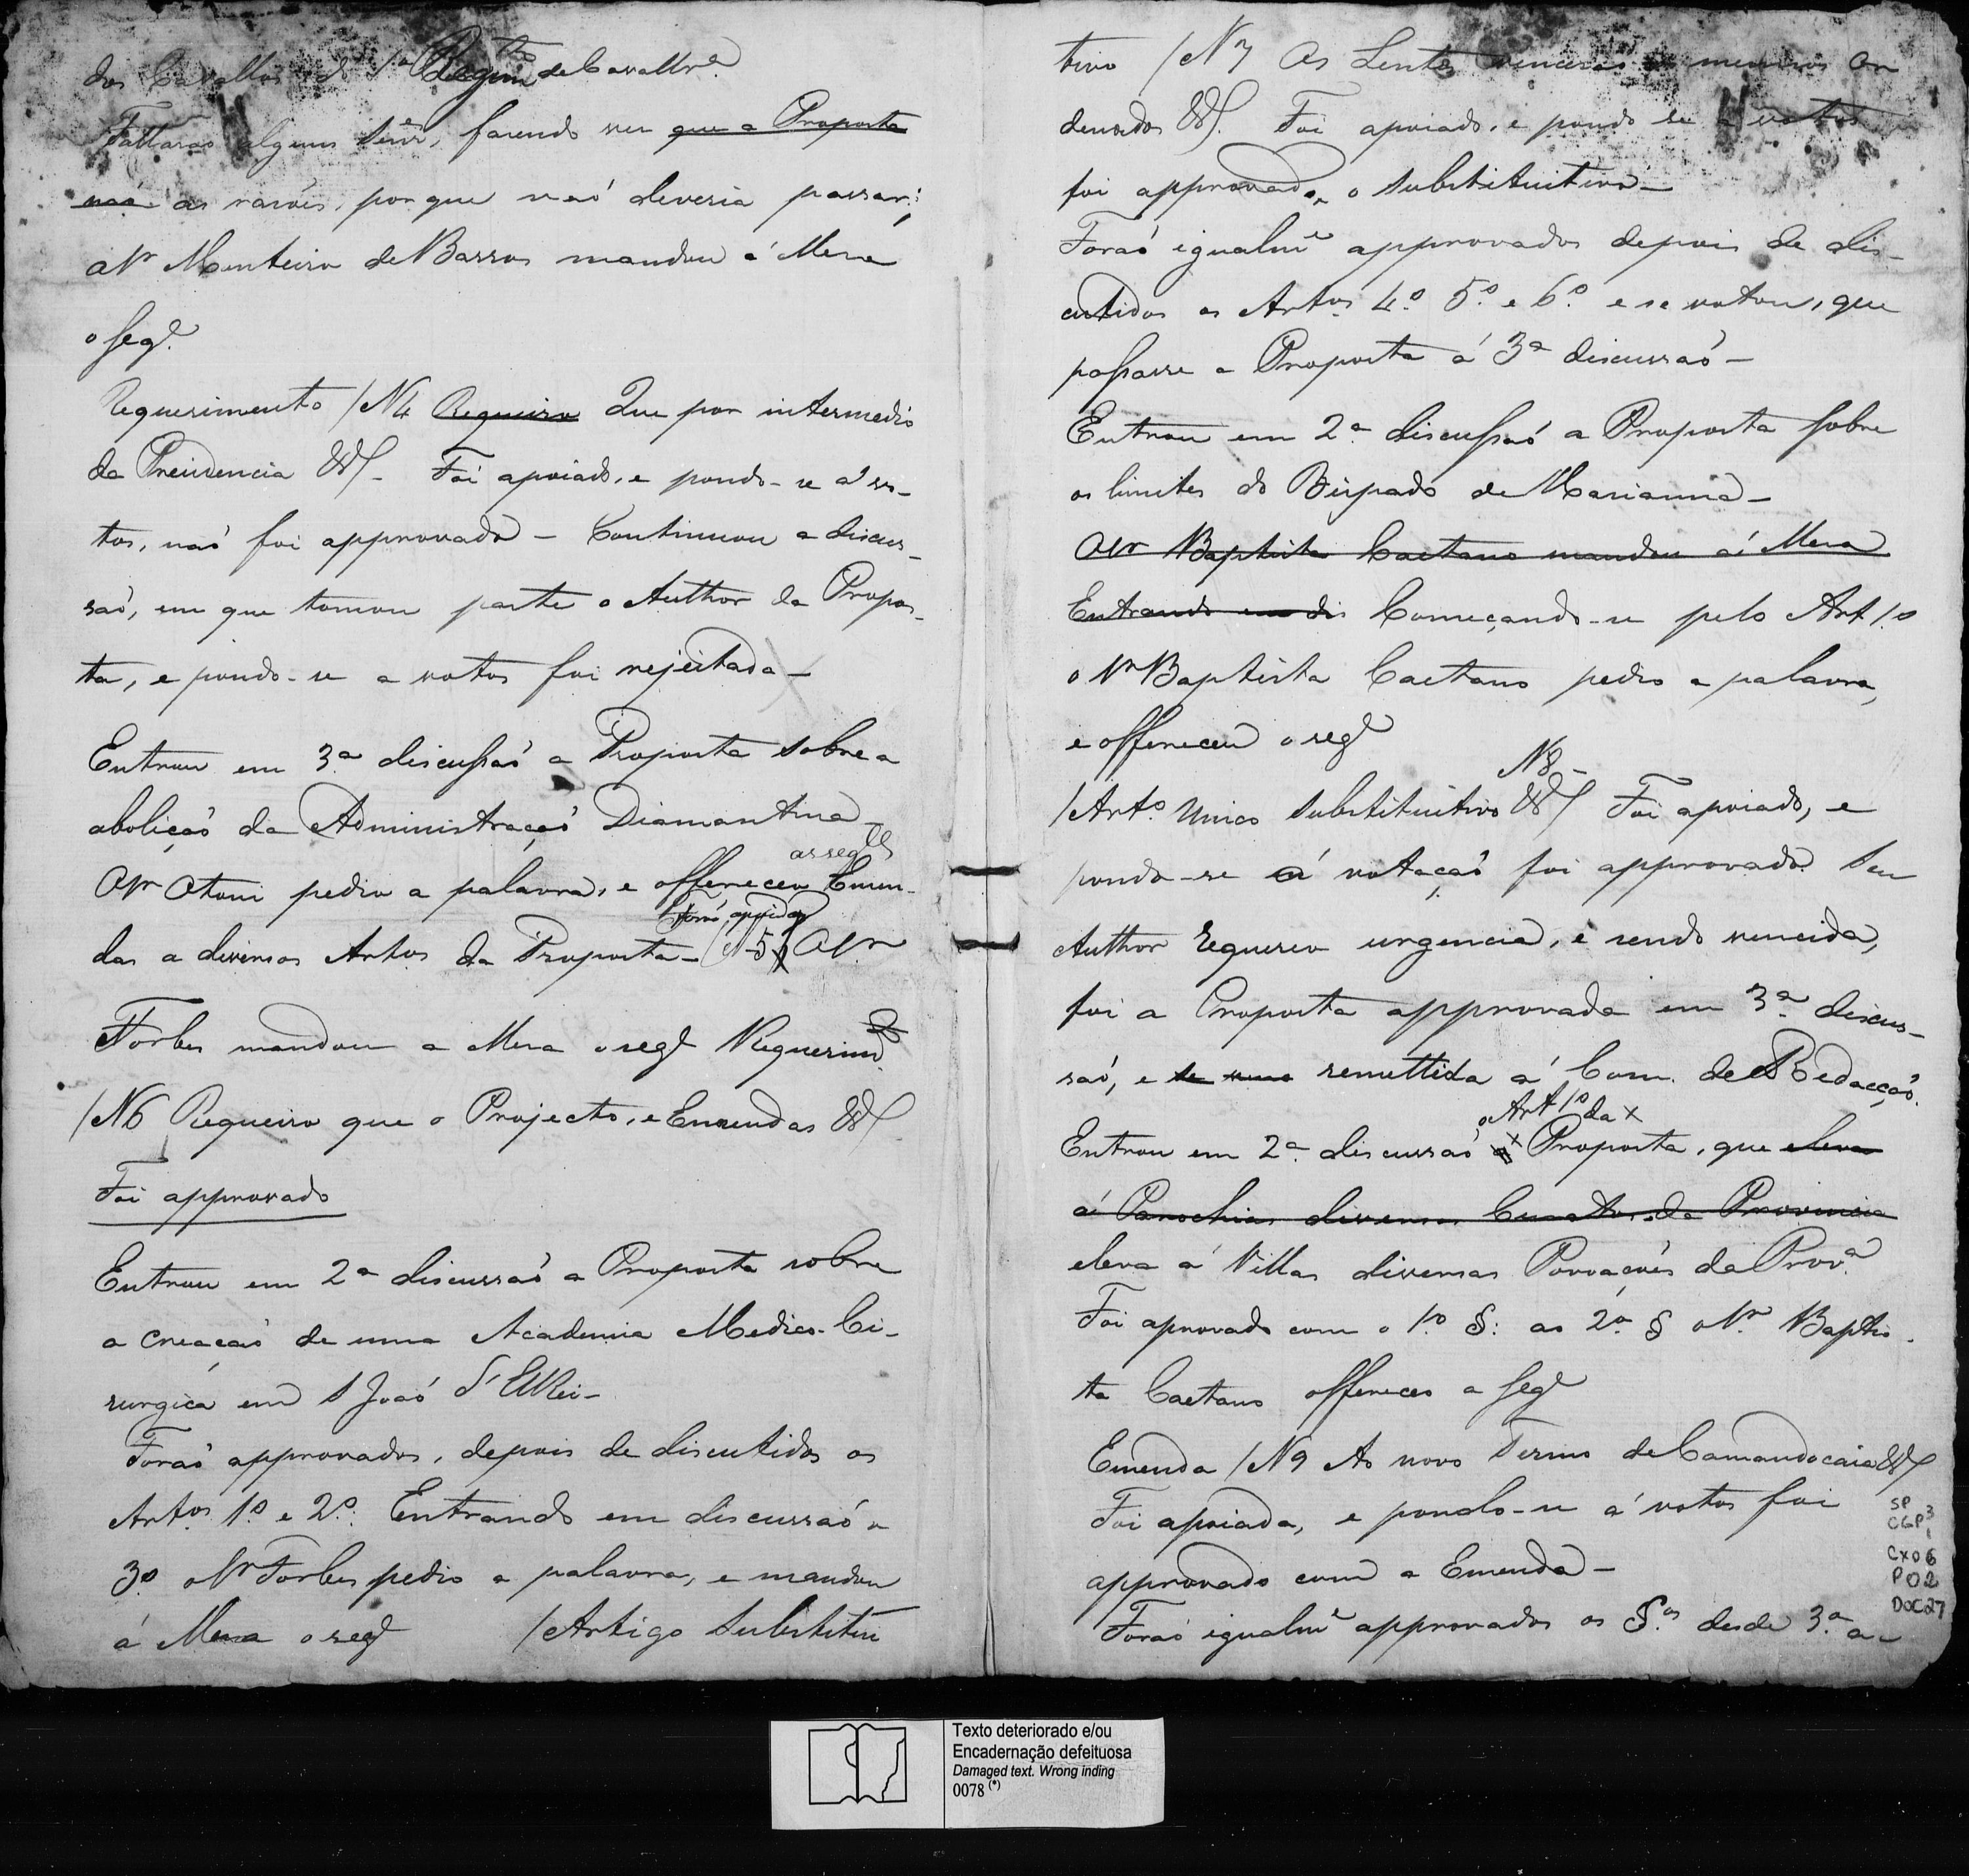 dos Cavallos do 1º Regimto de Cavallrª
Fallarao alguns Senres, fazendo ver que a Proposta
naó as razoẽs, porque naó deveria passar:
O Sr Monteiro de Barros mandou á Meza
o Sege
Requerimento /N4 Requeiro Que por intermedio
da Prezidencia &&. Foi apoiado, e pondo-se a vo-
tos, naó foi approvado - Continuou a discus-
saó, em que tomou parte o Author da Propos-
ta, e pondo-se a votos foi rejeitada -
Entrou em 3ª discussaó a Proposta sobre a
aboliçaó da Administraçaó Diamantina -
as segtes
O Sr Otoni pedio a palavra, e offereceo Emen-
foraó apoiadas
das a diversos Artos da Proposta - (N5) O Sr
Forbes mandou a Meza o sege Requerimto
/N6 Requeiro que o Projecto, e Emendas &&
Foi approvado
Entrou em 2ª discussaó a Proposta sobre
a creaçaó de uma Academia Medico-Ci-
rurgica em S Joaó d'ElRei -
Foraó approvados, depois de discutidos os
Artos 1º e 2º. Entrando em discussaó o
3º o Sr Forbes pedio a palavra, e mandou
á Meza o sege /Artigo Substitui
tivo /N7 Os Lentes venceraó os mesmos or
denados &&. Foi apoiado, e pondo se a votos
foi approvado o Substituitivo -
Foraó igualme approvados depois de dis-
cutidos os Artos 4º 5º e 6º e se votou, que
passasse a Proposta á 3ª discussaó -
Entrou em 2ª discussaó a Proposta sobre
os limites do Bispado de Marianna -
O Sr Baptista Caetano mandou á Meza
Entrando em dis Começando-se pelo Art 1º
o Sr Baptista Caetano pedio a palavra,
e offereceu o sege
N8 -
/Arto Unico Substituitivo && Foi apoiado, e
pondo-se á votaçaó foi approvado Seu
Author requereo urgencia, e sendo vencida,
foi a Proposta approvada em 3ª discus-
saó, e remettida á Com. de Redacçaó.
o Art 1º da x
Entrou em 2ª discussaó a x Proposta, que eleva
á Parochias diversos Curatos da Provincia
eleva á Villas diversas Povoaçoẽs da Provª
Foi aprovado com o 1º §: ao 2º § o Sr Baptis-
ta Caetano offereceo a Sege
Emenda /N9 Ao novo Termo de Camandocaia &&
Foi apoiada, e pondo-se á votos foi
approvado com a Emenda -
Foraó igualme approvados os §os desde 3º a-
SP
CGP 3
1
CX06
P02
DOC27
Texto deteriorado e/ou
Encadernação defeituosa
Damaged text. Wrong inding
0078 (*)